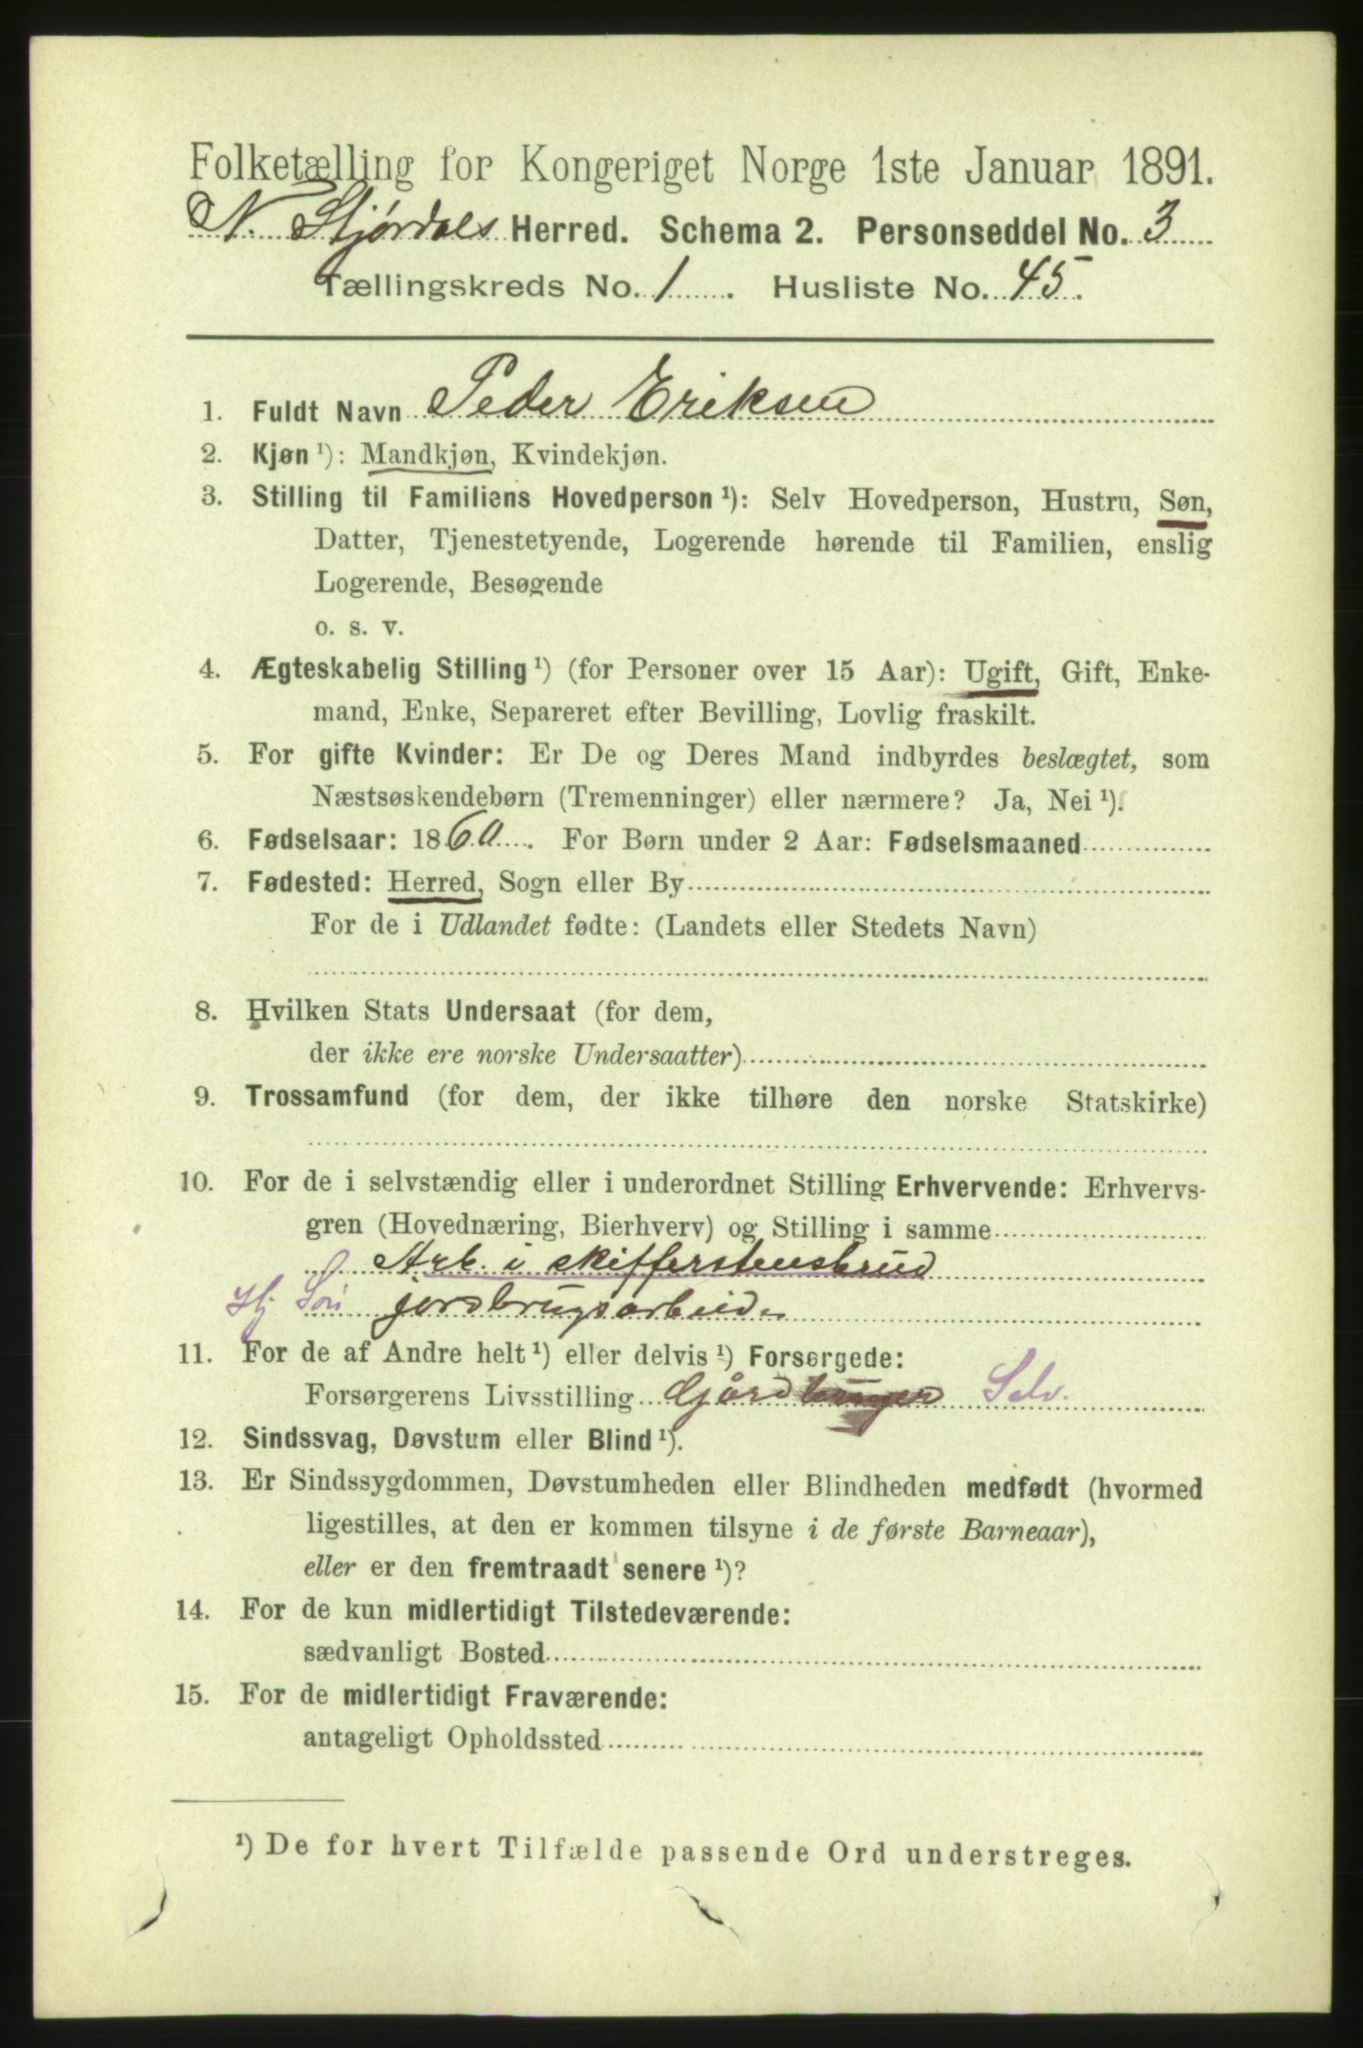 Folketælling for Kongeriget Norge 1ste Januar 1891.
N. Stjørdals Herred. Schema 2. Personseddel No. 3
Tællingskreds No. 1. Husliste No. 45.
1. Fuldt Navn Peder Eriksen
2. Kjøn ¹): Mandkjøn, Kvindekjøn.
3. Stilling til Familiens Hovedperson ¹): Selv Hovedperson, Hustru, Søn,
Datter, Tjenestetyende, Logerende hørende til Familien, enslig
Logerende, Besøgende
o. s. v.
4. Ægteskabelig Stilling ¹) (for Personer over 15 Aar): Ugift, Gift, Enke-
mand, Enke, Separeret efter Bevilling, Lovlig fraskilt.
5. For gifte Kvinder: Er De og Deres Mand indbyrdes beslægtet, som
Næstsøskendebørn (Tremenninger) eller nærmere? Ja, Nei ¹).
6. Fødselsaar: 1860. For Børn under 2 Aar: Fødselsmaaned
7. Fødested: Herred, Sogn eller By
For de i Udlandet fødte: (Landets eller Stedets Navn)
8. Hvilken Stats Undersaat (for dem,
der ikke ere norske Undersaatter)
9. Trossamfund (for dem, der ikke tilhøre den norske Statskirke)
10. For de i selvstændig eller i underordnet Stilling Erhvervende: Erhvervs-
gren (Hovednæring, Bierhverv) og Stilling i samme
Arb. i skifferstensbrud
Hj Søn jordbrugsarbeide
11. For de af Andre helt ¹) eller delvis ¹) Forsørgede:
Forsørgerens Livsstilling Gårdbruger Selv.
12. Sindssvag, Døvstum eller Blind ¹).
13. Er Sindssygdommen, Døvstumheden eller Blindheden medfødt (hvormed
ligestilles, at den er kommen tilsyne i de første Barneaar),
eller er den fremtraadt senere ¹)?
14. For de kun midlertidigt Tilstedeværende:
sædvanligt Bosted
15. For de midlertidigt Fraværende:
antageligt Opholdssted
¹) De for hvert Tilfælde passende Ord understreges.